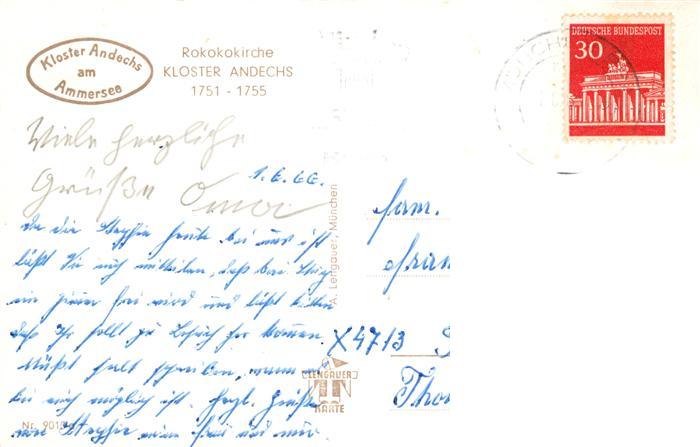 Kloster Andechs
am
Ammersee
Rokokokirche
KLOSTER ANDECHS
1751 - 1755
DEUTSCHE BUNDESPOST
30
Viele herzliche
Grüße Oma
1.6.66.
Da die Steffie heute bei uns ist
läßt Sie euch mitteilen, daß bei
ein Zimmer frei wird und läßt bitten
daß Ihr sollt zu Besuch her kommen.
Müßt halt schreiben, wann es
bei euch möglich ist. Herzl. Grüße
von Steffie meine Frau und mir.
Fam.
X4713
Tho
A. Lengauer, München
LENGAUER
KARTE
Nr. 901